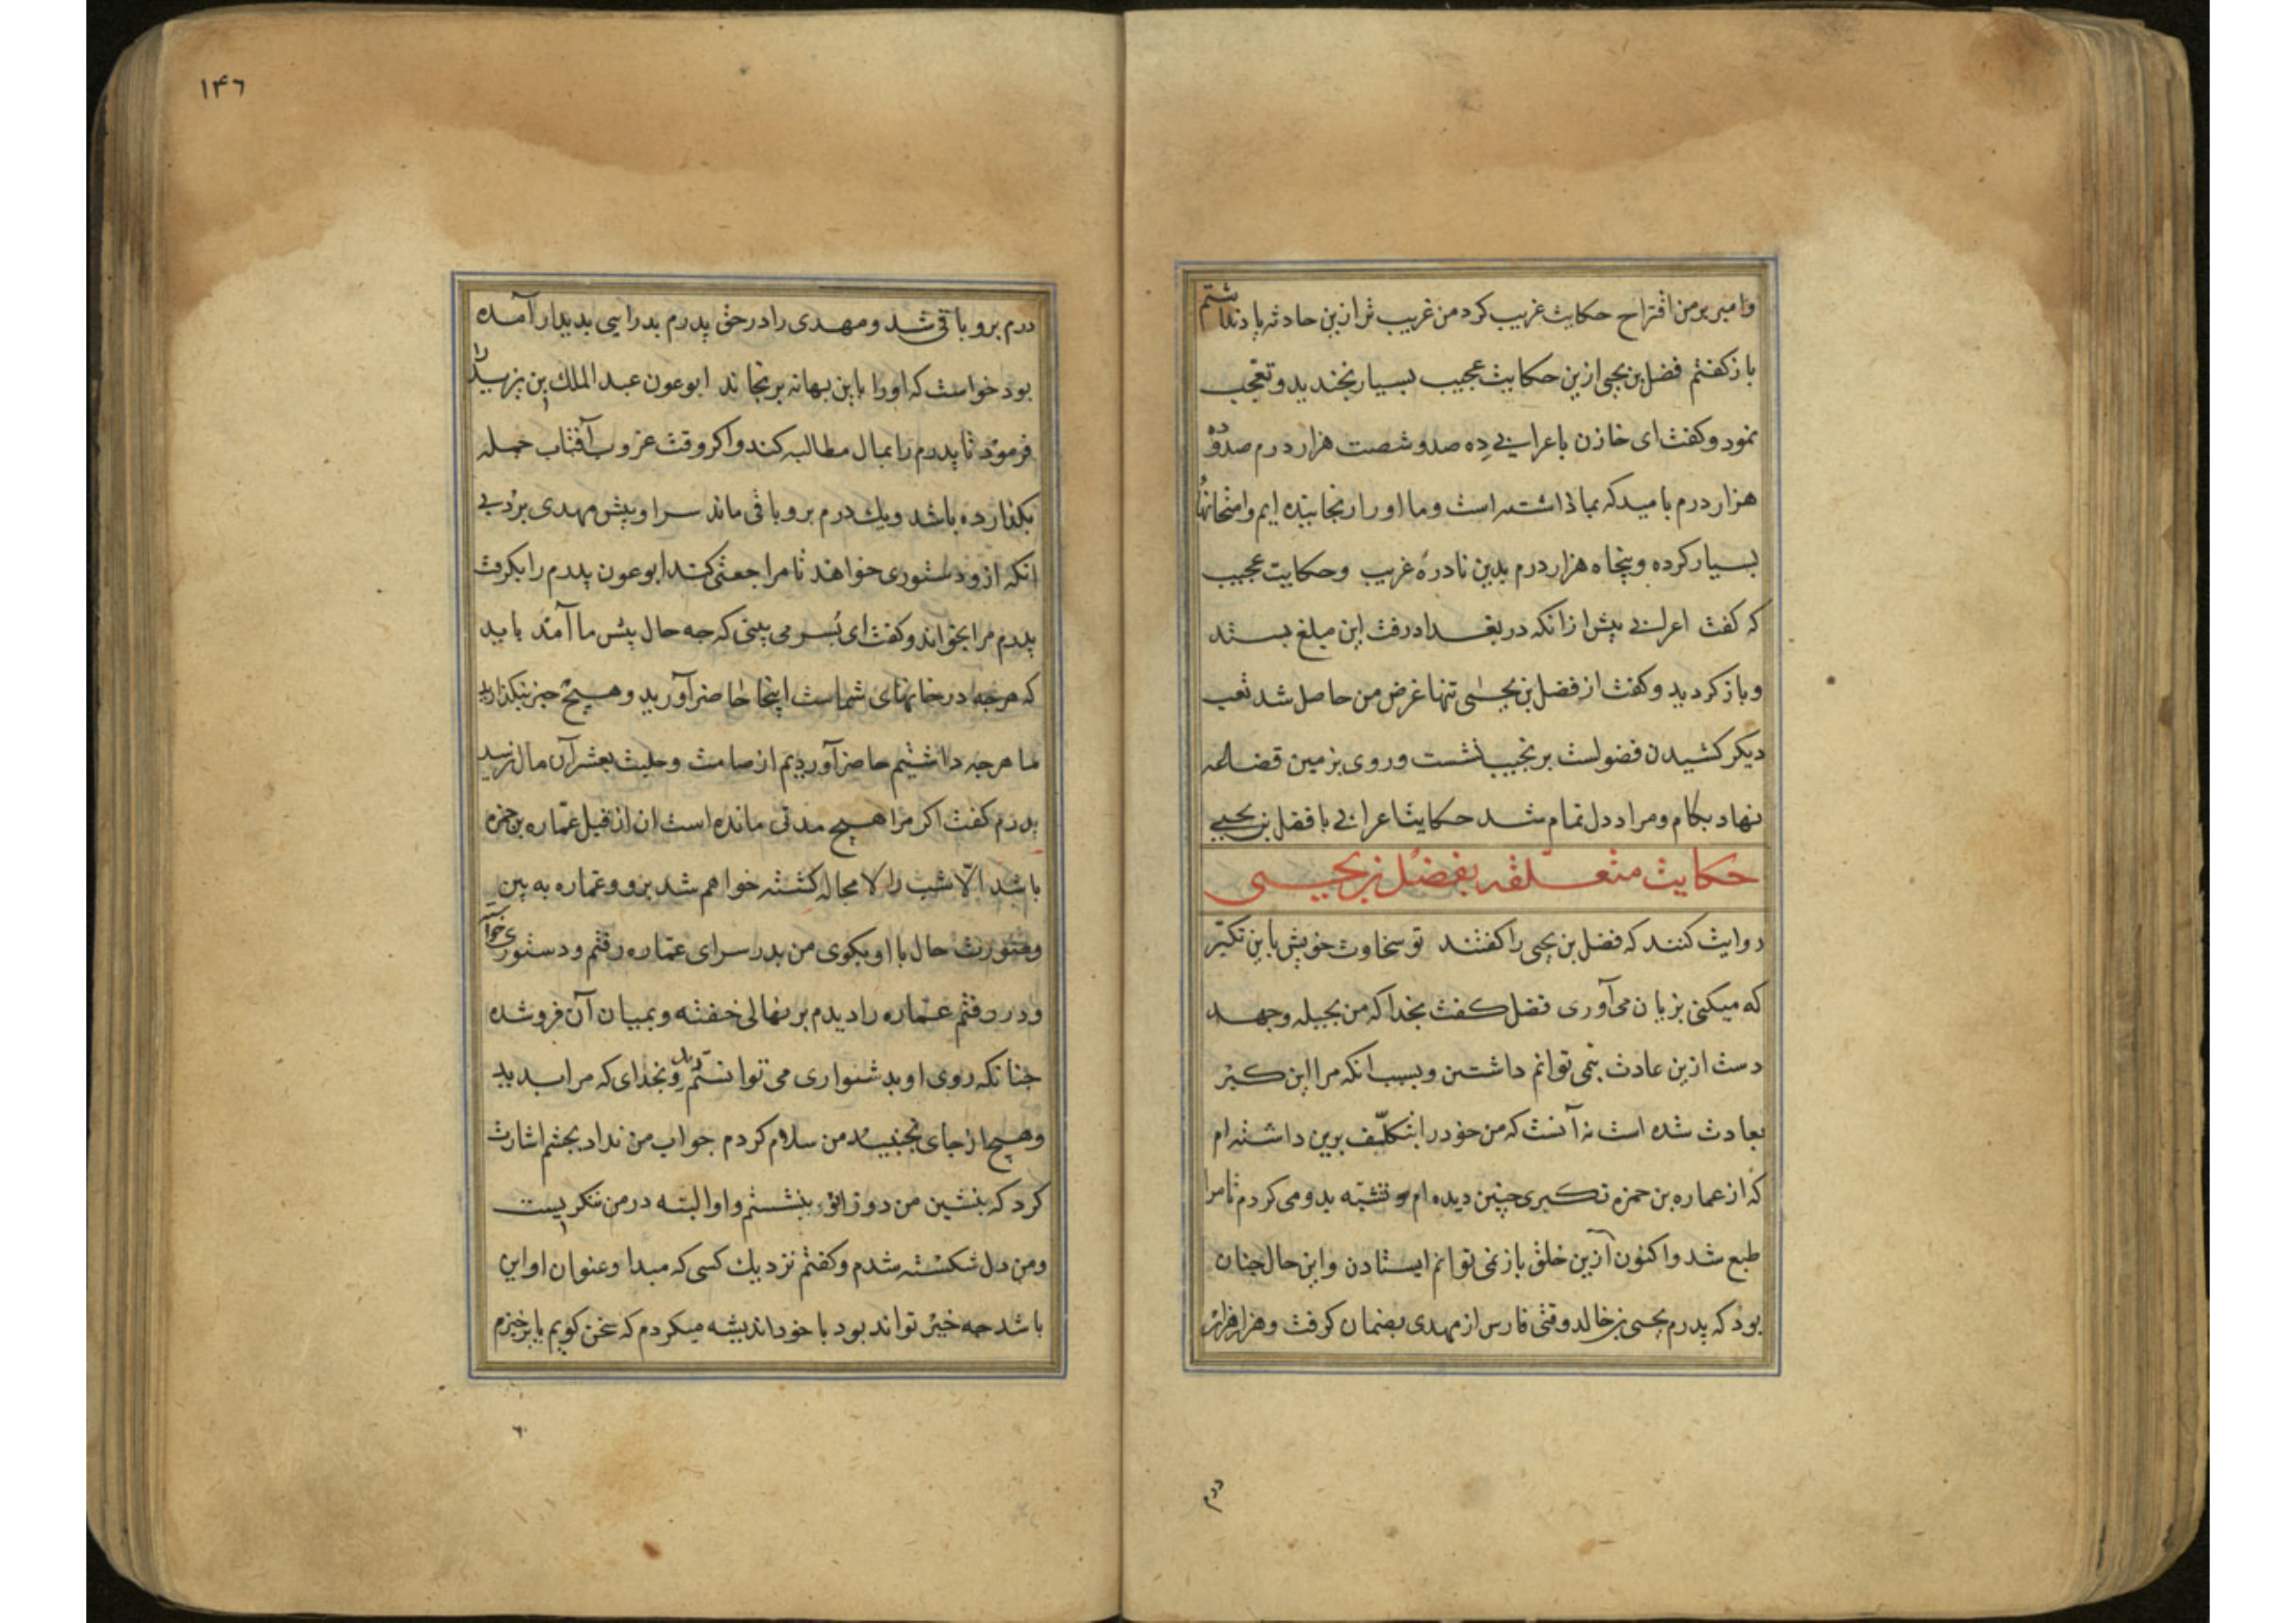 وامیر بر من اقتراح حکایت غریب کرد من غریب تر ازین حادثه یاد نداشتم
باز کفتم فضل بن یحیی ازین حکایت عجیب بسیار بخندید و تعجب
نمود و کفت ای خازن باعرابی ده صد و شصت هزار درم صد و ده
هزار درم بامید که بما داشته است و ما او را رنجانیده ایم و امتحانها
بسیار کرده و پنجاه هزار درم بدین نادره غریب و حکایت عجیب
که کفت اعرابی پیش ازانکه در بغداد رفت این مبلغ بستد
و باز کردید و کفت از فضل بن یحیی تنها غرض من حاصل شد تعب
دیکر کشیدن فضولست بر نجیب نشست و روی بزمین قضاعه
نهاد بکام و مراد دل تمام شد حکایت اعرابی با فضل بن یحیی
حکایت متعلقه بفضل بن یحیی
روایت کنند که فضل بن یحیی را کفتند تو سخاوت خویش باین تکبر
که میکنی بزیان می آوری فضل کفت بخدا که من بحیله و جهد
دست ازین عادت نمی توانم داشتن و بسبب انکه مرا این کبر
بعادت شده است نه آنست که من خود را بتکلیف برین داشته ام
که از عماره بن حمزه تکبری چنین دیده ام و تشبه بدو می کردم تا مرا
طبع شد و اکنون ازین خلق باز نمی توانم ایستادن و این حال چنان
بود که پدرم یحیی بن خالد وقتی فارس از مهدی بضمان کرفت و هزار هزار
درم
۱۴۶
درم برو باقی شد و مهدی را در حق پدرم بدرایی بدیدار آمده
بود خواست که او را باین بهانه برنجاند ابوعون عبد الملک بن یزید را
فرمود تا پدرم را بمال مطالبه کند و اکر وقت غروب آفتاب جمله
بکذارده باشد و یک درم برو باقی ماند سر او پیش مهدی برد بی
انکه ازو دستوری خواهد تا مراجعتی کند ابوعون پدرم را بکرفت
پدرم مرا بخواند و کفت ای پسر می بینی که چه حال پیش ما آمد باید
که هرچه در خانهای شماست اینجا حاضر آورید و هیچ چیز نکذارید
ما هرچه داشتیم حاضر آوردیم از صامت و حلیت بعشر آن مال نرسید
پدرم کفت اکر مرا هیچ مدتی مانده است ان از قبل عماره بن حمزه
باشد الا شب را لا محاله کشته خواهم شد برو و عماره به بین
و صورت حال با او بکوی من بدر سرای عماره رفتم و دستوری خواستم
و در رفتم عماره را دیدم بر نهالی خفته و بمیان آن فرو شده
چنانکه روی او بدشواری می توانستم دید و بخدای که مرا بدید
و هیچ از جای نجنبید من سلام کردم جواب من نداد بچشم اشارت
کرد که بنشین من دو زانو بنشستم و او البته در من ننکریست
و من دل شکسته شدم و کفتم نزدیک کسی که مبدا و عنوان او این
باشد چه خیر تواند بود با خود اندیشه میکردم که سخن کویم یا برخیزم